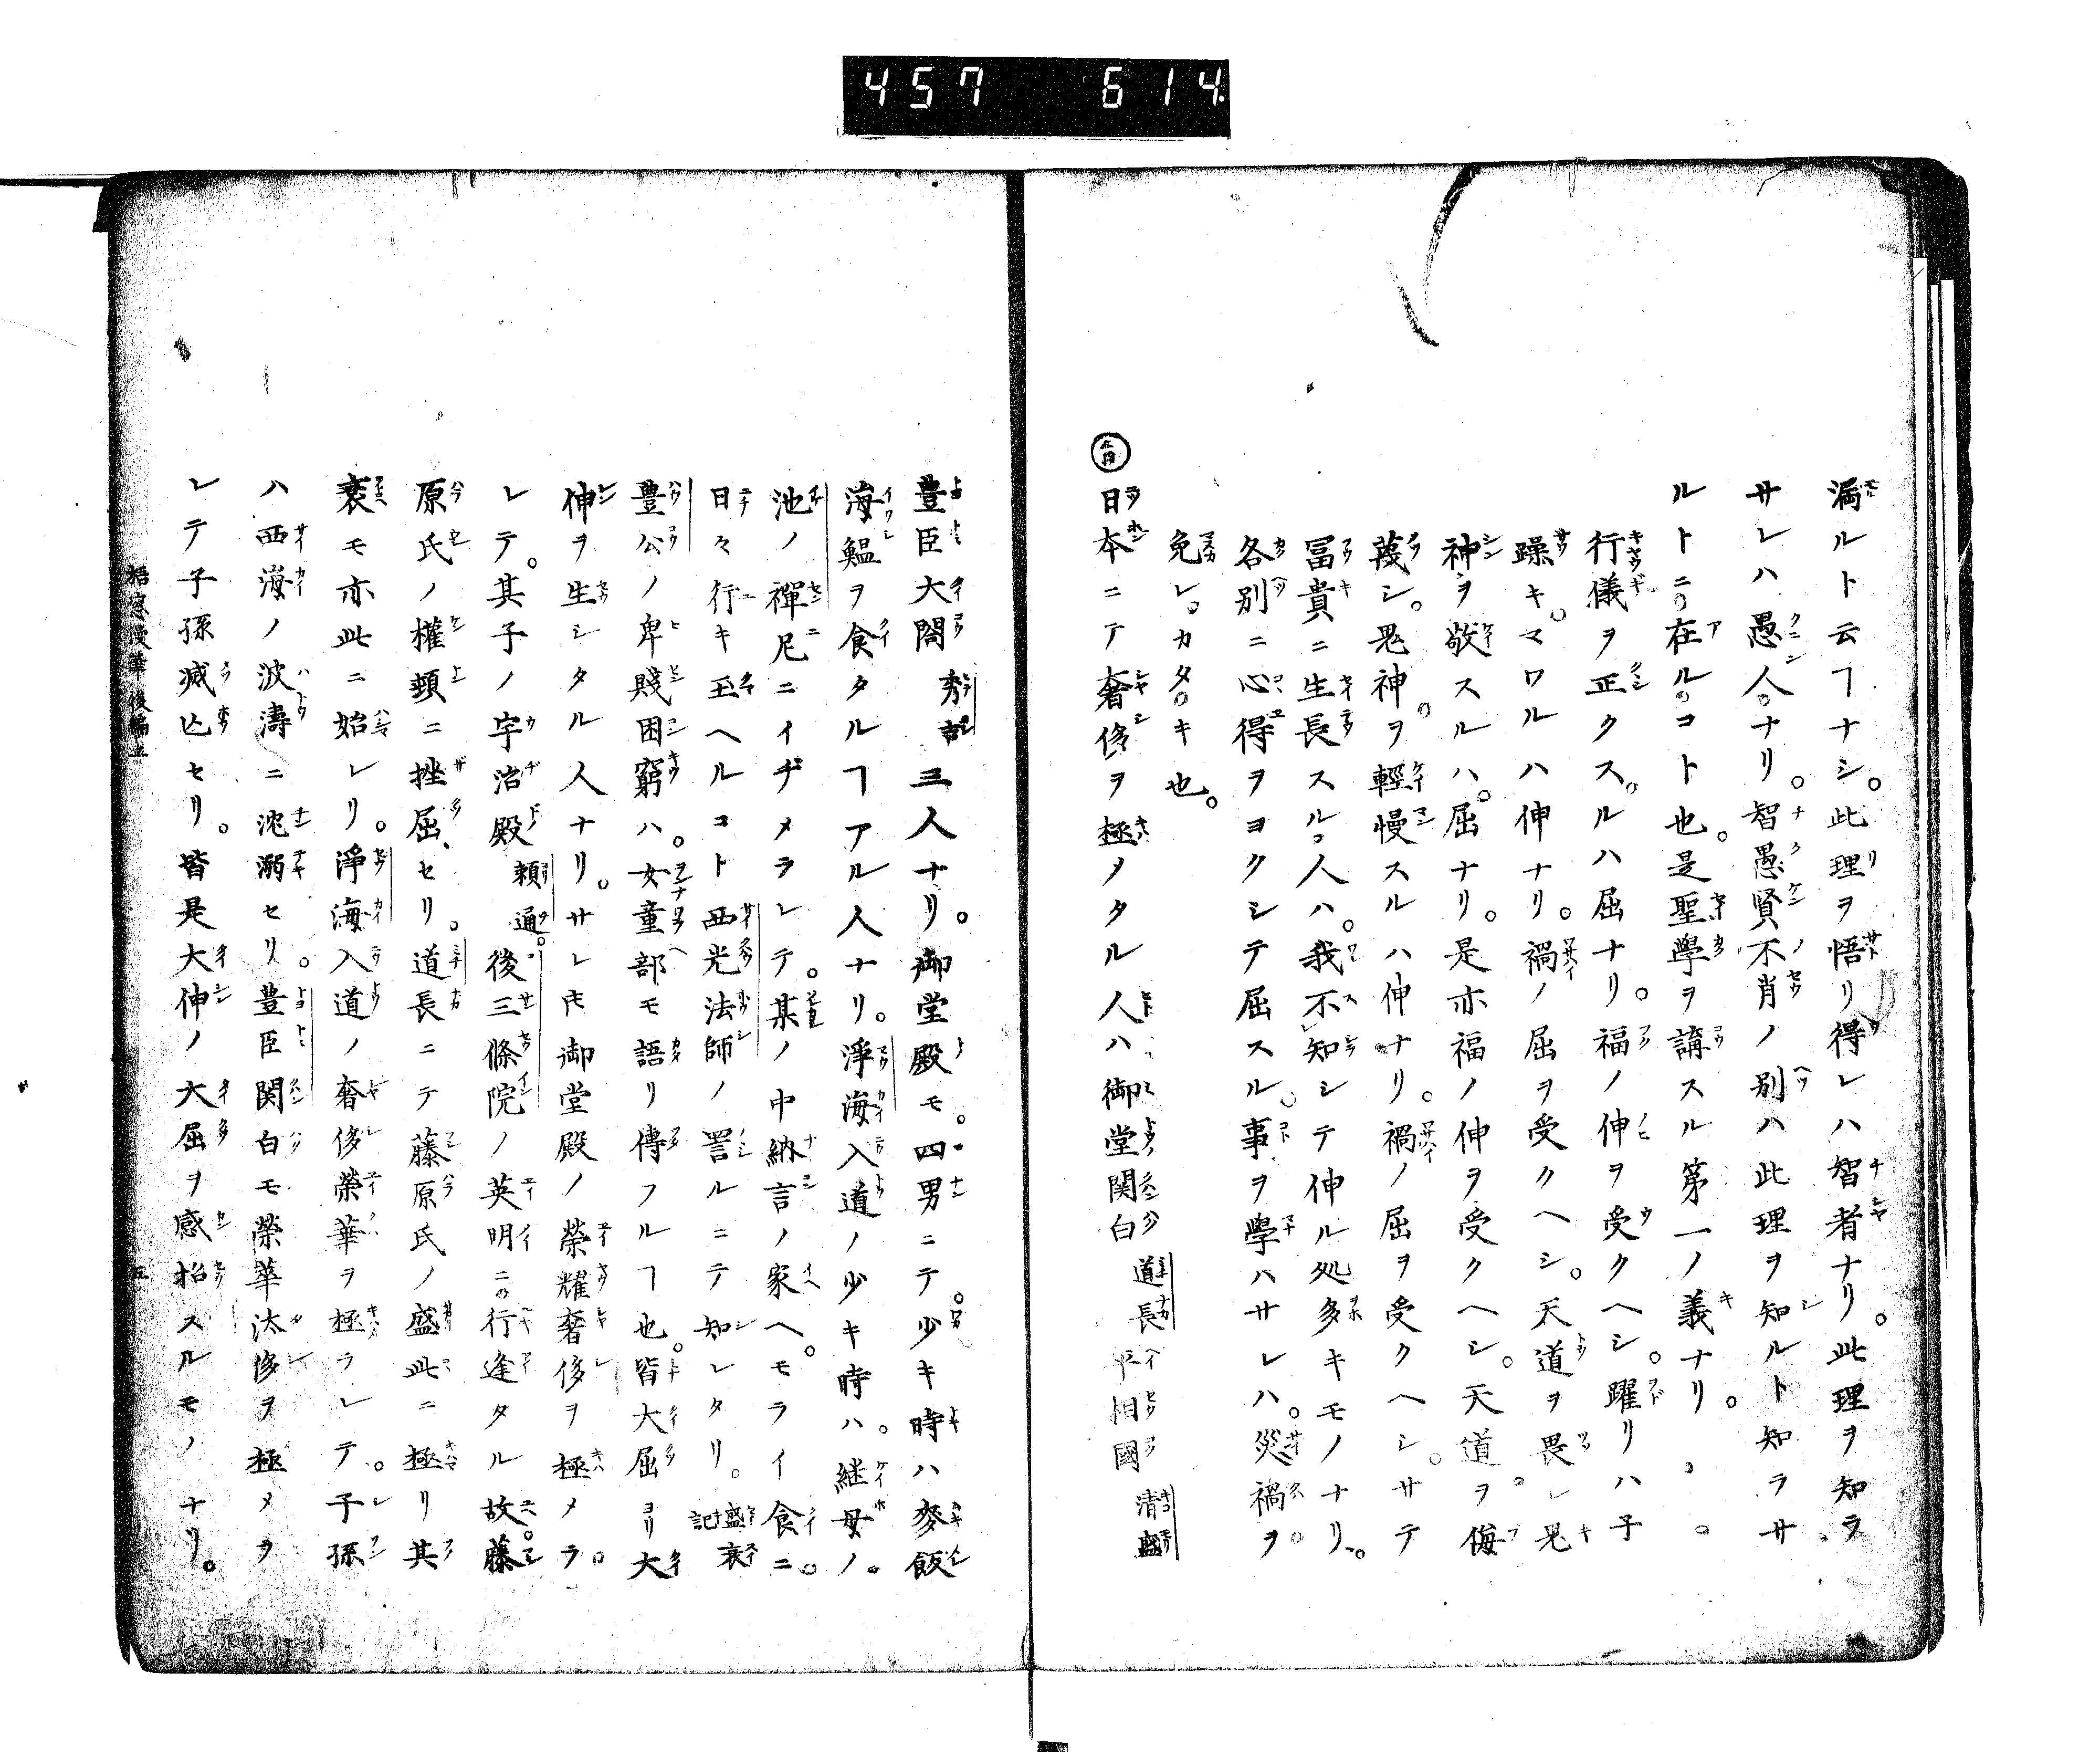 457 614
漏ルト云ヿナシ。此理ヲ悟リ得レハ智者ナリ。此理ヲ知ラ
サレハ愚人ナリ。智愚賢不肖ノ別ハ此理ヲ知ルト知ラサ
ルトニ在ルコト也。是聖學ヲ講スル第一ノ義ナリ。
行儀ヲ正クスルハ屈ナリ。福ノ伸ヲ受クヘシ。躍リハ子
躁キマワルハ伸ナリ。禍ノ屈ヲ受クヘシ。天道ヲ畏レ鬼
神ヲ敬スルハ。屈ナリ。是亦福ノ伸ヲ受クヘシ。天道ヲ侮
蔑シ。鬼神ヲ輕慢スルハ伸ナリ。禍ノ屈ヲ受クヘシ。サテ
冨貴ニ生長スル人ハ。我不知シテ伸ル処多キモノナリ。
各別ニ心得ヲヨクシテ屈スル事ヲ學ハサレハ。災禍ヲ
免レカタキ也。
日本ニテ奢侈ヲ極メタル人ハ、御堂関白道長平相國清盛
豊臣大閤秀吉三人ナリ。御堂殿モ。四男ニテ。少キ時ハ麥飯
海鰛ヲ食タルヿアル人ナリ。淨海入道ノ少キ時ハ。継母ノ
池ノ禪尼ニイヂメラレテ。某ノ中納言ノ家ヘ。モライ食ニ
日々行キ玉ヘルコト西光法師ノ詈ルニテ知レタリ。盛衰記
豊公ノ卑賤困窮ハ。女童部モ語リ傳フルヿ也。皆大屈ヨリ大
伸ヲ生シタル人ナリ。サレ𪜈御堂殿ノ榮耀奢侈ヲ極メラ
レテ。其子ノ宇治殿頼通。後三條院ノ英明ニ行逢タル故。藤
原氏ノ權頓ニ挫屈セリ。道長ニテ藤原氏ノ盛此ニ極リ其
衰モ亦此ニ始レリ。淨海入道ノ奢侈榮華ヲ極ラレテ。子孫
ハ西海ノ波濤ニ沈溺セリ。豊臣関白モ榮華汰侈ヲ極メヲ
レテ子孫滅亡セリ。皆是大伸ノ大屈ヲ感招スルモノナリ。
梧窓漫筆後編上
五